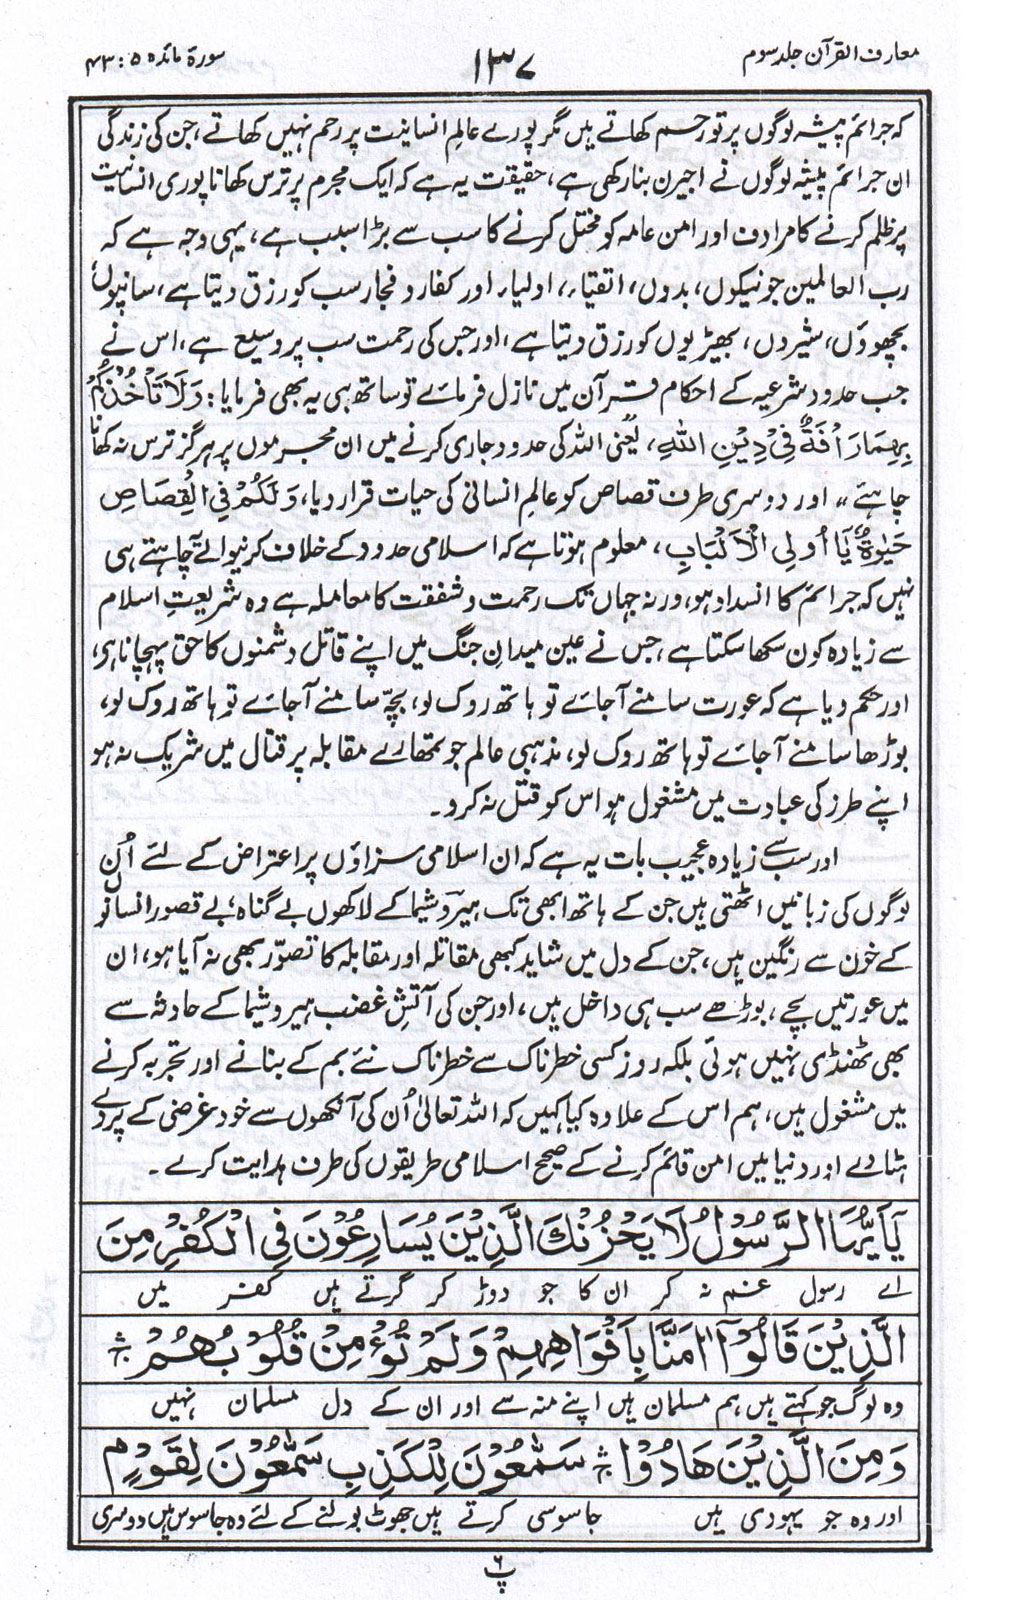 معارف القرآن جلد سوم
۱۳۷
سورۃ مائدہ ۵ : ۴۳
کہ جرائم پیشہ لوگوں پر تو رحم کھاتے ہیں مگر پورے عالمِ انسانیت پر رحم نہیں کھاتے، جن کی زندگی
ان جرائم پیشہ لوگوں نے اجیرن بنا رکھی ہے، حقیقت یہ ہے کہ ایک مجرم پر ترس کھانا پوری انسانیت
پر ظلم کرنے کا مرادف اور امن عامہ کو مختل کرنے کا سب سے بڑا سبب ہے، یہی وجہ ہے کہ
رب العالمین جو نیکوں، بدوں، اتقیاء، اولیاء اور کفار و فجار سب کو رزق دیتا ہے، سانپوں،
بچھوؤں، شیروں، بھیڑیوں کو رزق دیتا ہے، اور جس کی رحمت سب پر وسیع ہے، اس نے
جب حدود شرعیہ کے احکام قرآن میں نازل فرمائے تو ساتھ ہی یہ بھی فرمایا: وَلَا تَأْخُذْكُمْ
بِهِمَا رَأْفَةٌ فِيْ دِيْنِ اللّٰهِ، یعنی اللہ کی حدود جاری کرنے میں ان مجرموں پر ہرگز ترس نہ کھانا
چاہئے،، اور دوسری طرف قصاص کو عالمِ انسانی کی حیات قرار دیا، وَلَكُمْ فِي الْقِصَاصِ
حَيٰوةٌ يَا أُولِي الْأَلْبَابِ، معلوم ہوتا ہے کہ اسلامی حدود کے خلاف کرنیوالے چاہتے ہی
نہیں کہ جرائم کا انسداد ہو، ورنہ جہاں تک رحمت و شفقت کا معاملہ ہے وہ شریعتِ اسلام
سے زیادہ کون سکھا سکتا ہے، جس نے عین میدانِ جنگ میں اپنے قاتل دشمنوں کا حق پہچانا ہی،
اور حکم دیا ہے کہ عورت سامنے آجائے تو ہاتھ روک لو، بچہ سامنے آجائے تو ہاتھ روک لو،
بوڑھا سامنے آجائے تو ہاتھ روک لو، مذہبی عالم جو تمھارے مقابلہ پر قتال میں شریک نہ ہو
اپنے طرز کی عبادت میں مشغول ہو اس کو قتل نہ کرو۔
اور سب سے زیادہ عجیب بات یہ ہے کہ ان اسلامی سزاؤں پر اعتراض کے لئے اُن
لوگوں کی زبانیں اٹھتی ہیں جن کے ہاتھ ابھی تک ہیروشیما کے لاکھوں بے گناہ، بے قصور انسانوں
کے خون سے رنگین ہیں، جن کے دل میں شاید کبھی مقاتلہ اور مقابلہ کا تصوّر بھی نہ آیا ہو، ان
میں عورتیں بچے، بوڑھے سب ہی داخل ہیں، اور جن کی آتشِ غضب ہیروشیما کے حادثہ سے
بھی ٹھنڈی نہیں ہوئی بلکہ روز کسی خطرناک سے خطرناک نئے بم کے بنانے اور تجربہ کرنے
میں مشغول ہیں، ہم اس کے علاوہ کیا کہیں کہ اللہ تعالیٰ اُن کی آنکھوں سے خود غرضی کے پردے
ہٹا دے اور دنیا میں امن قائم کرنے کے صحیح اسلامی طریقوں کی طرف ہدایت کرے۔
يٰٓاَيُّهَا الرَّسُوْلُ لَا يَحْزُنْكَ الَّذِيْنَ يُسَارِعُوْنَ فِي الْكُفْرِ مِنَ
اے رسول غم نہ کر ان کا جو دوڑ کر گرتے ہیں کفر میں
الَّذِيْنَ قَالُوْٓا اٰمَنَّا بِاَفْوَاهِهِمْ وَلَمْ تُؤْمِنْ قُلُوْبُهُمْ ۛ
وہ لوگ جو کہتے ہیں ہم مسلمان ہیں اپنے منہ سے اور ان کے دل مسلمان نہیں
وَمِنَ الَّذِيْنَ هَادُوْا ۛ سَمّٰعُوْنَ لِلْكَذِبِ سَمّٰعُوْنَ لِقَوْمٍ
اور وہ جو یہودی ہیں جاسوسی کرتے ہیں جھوٹ بولنے کے لئے وہ جاسوس ہیں دوسری
پ ۶